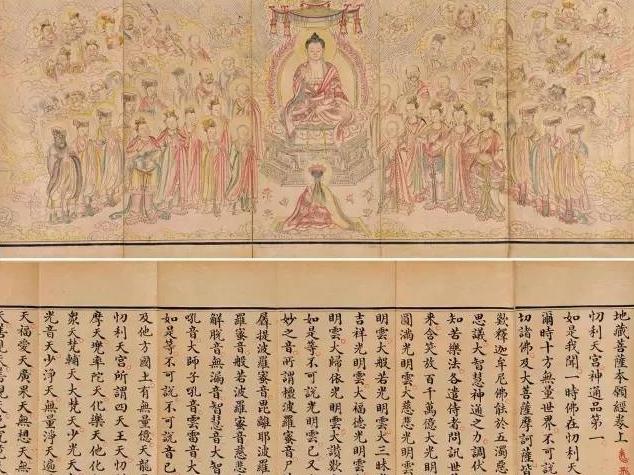 地藏菩薩本願經卷上
忉利天宮神通品第一
如是我聞一時佛在忉利
爾時十方無量世界不可
切諸佛及大菩薩摩訶薩皆
歎釋迦牟尼佛能於五濁惡
思議大智慧神通之力調伏
知苦樂法各遣侍者問訊世
來含笑放百千萬億大光明
圓滿光明雲大慈悲光明雲
明雲大般若光明雲大三昧
吉祥光明雲大福德光明雲
明雲大歸依光明雲大讚歎
如是等不可說光明雲已又
妙之音所謂檀波羅蜜音尸
羼提波羅蜜音毘離耶波羅
羅蜜音般若波羅蜜音慈
解脫音無漏音智慧音大智
吼音大師子吼音雲雷音大
如是等不可說不可說音已
及他方國土有無量億天龍
忉利天宮所謂四天王天忉
摩天兜率陀天化樂天他化
眾天梵輔天大梵天少光天
光音天少淨天無量淨天遍
天福愛天廣果天無想天無